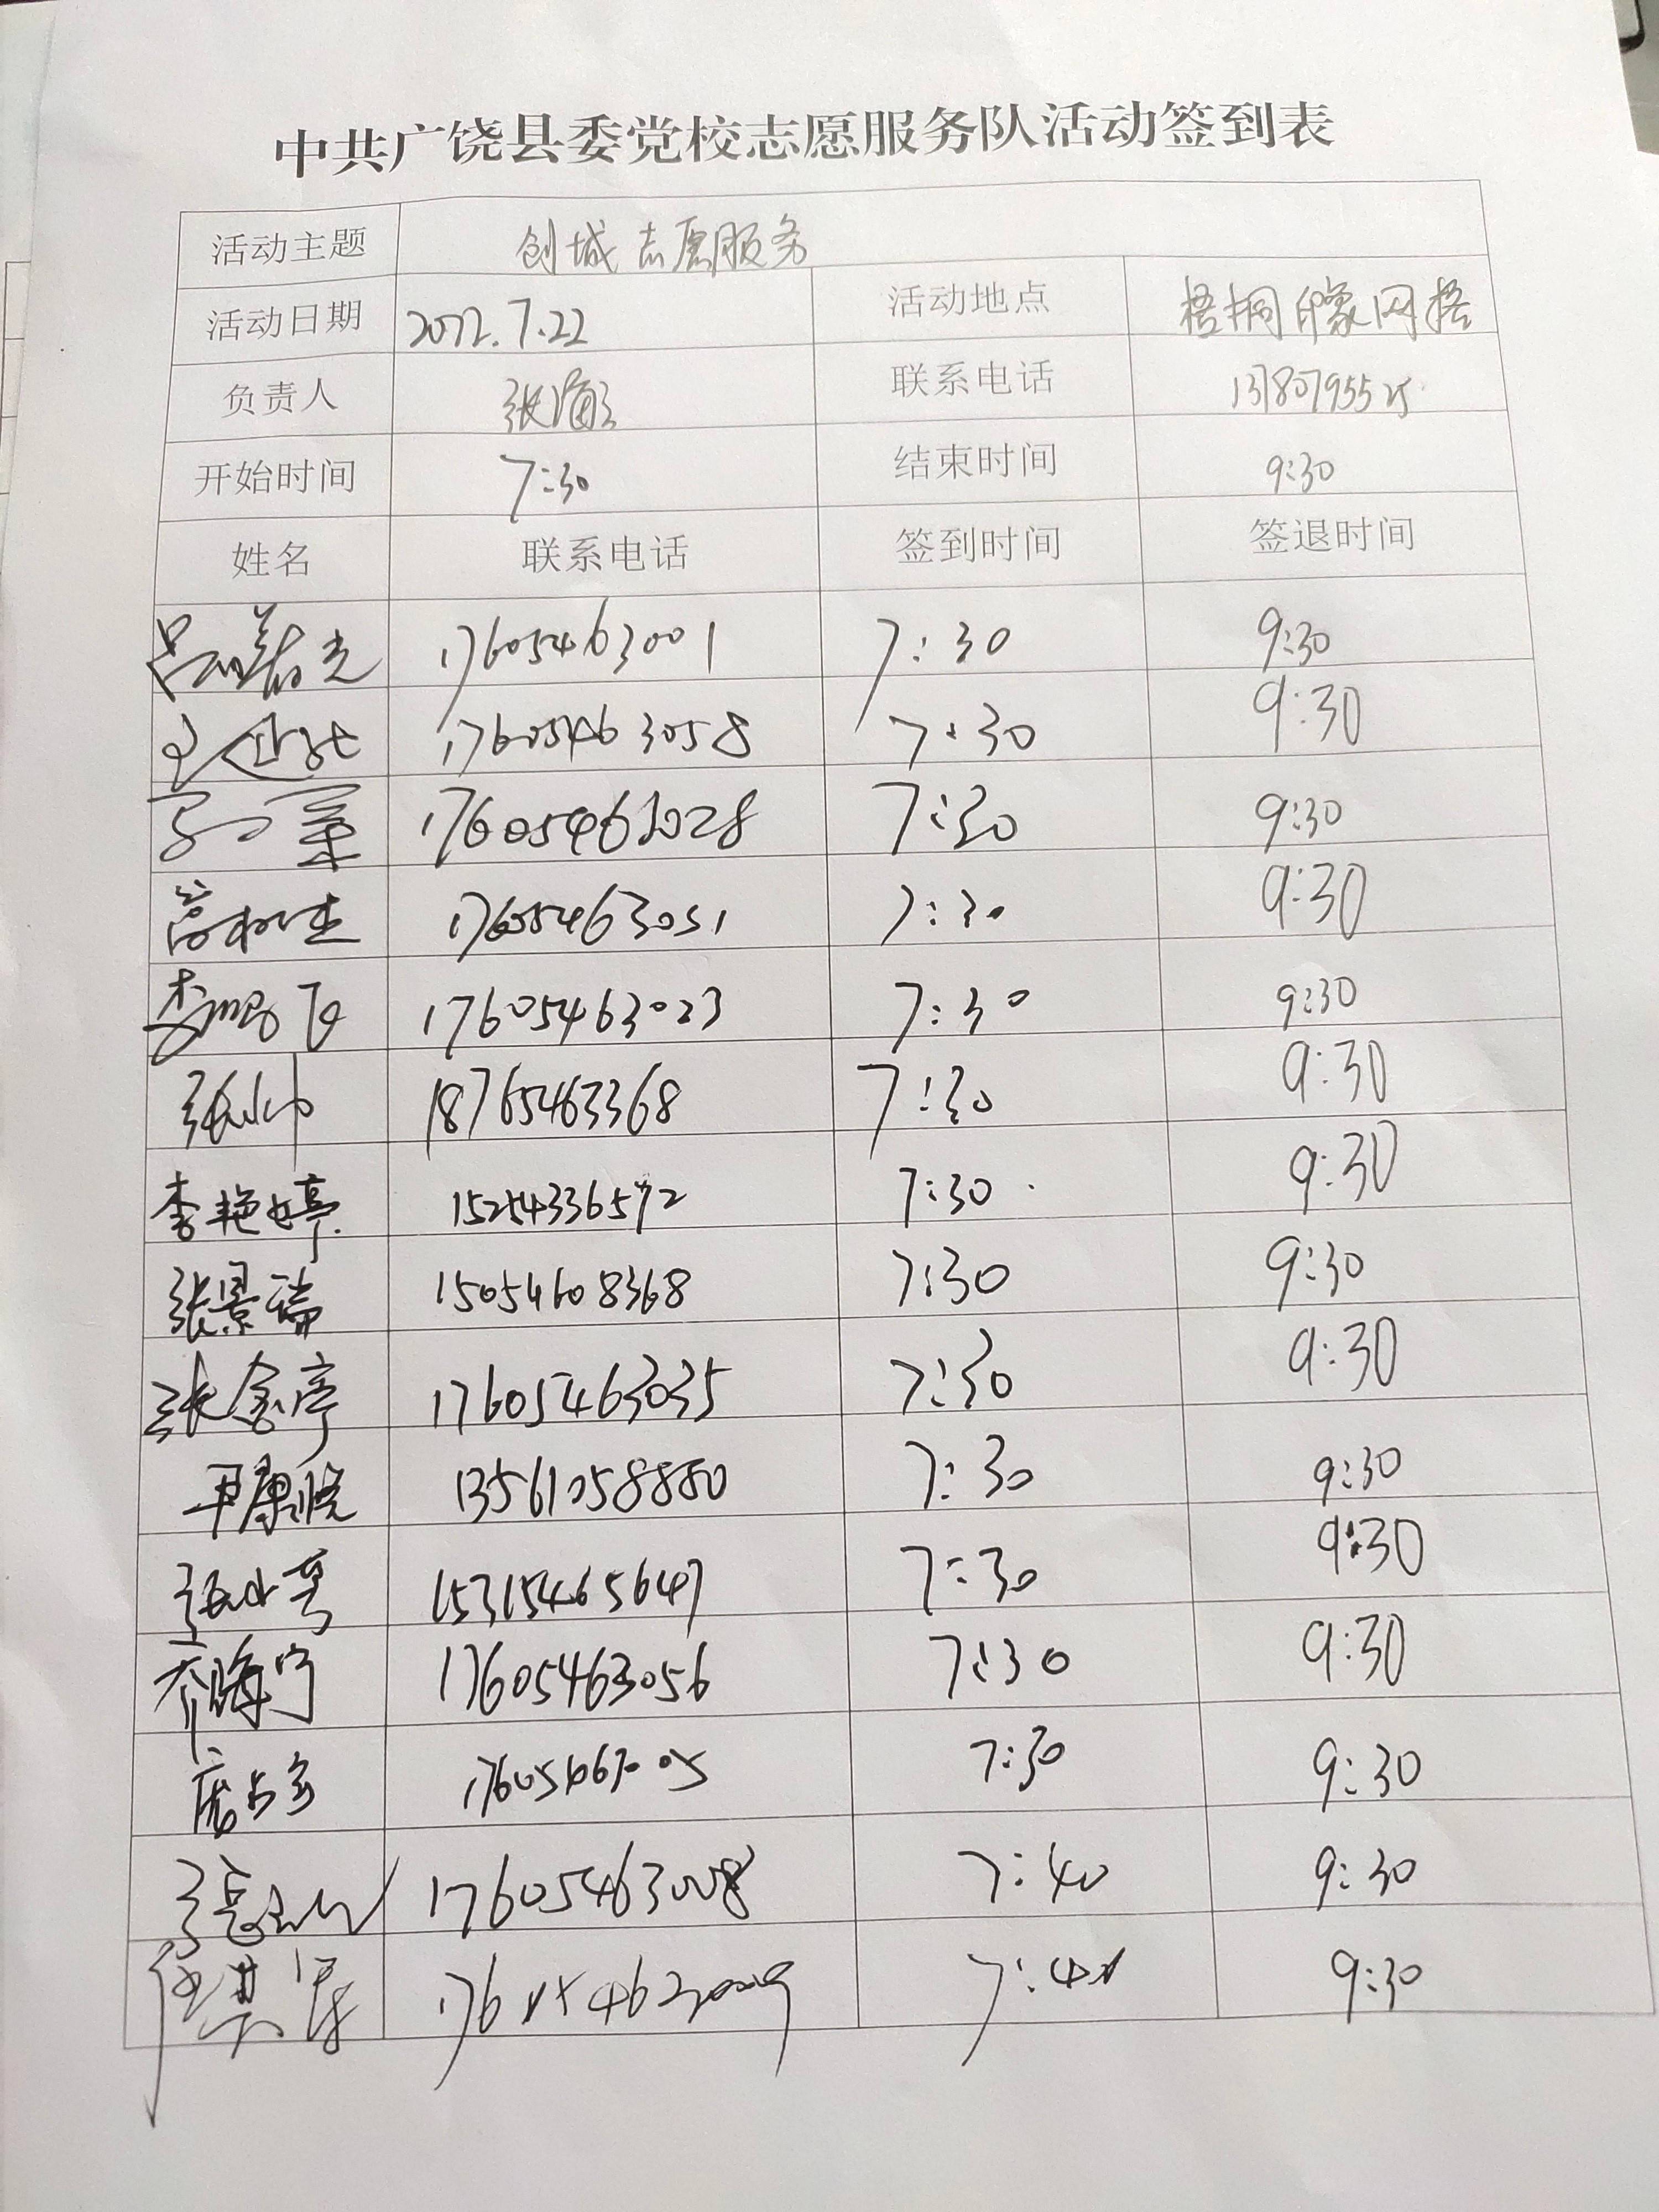 中共广饶县委党校志愿服务队活动签到表
活动主题 创城志愿服务
活动日期 2022.7.22 活动地点 梧桐印象网格
负责人 联系电话
开始时间 7:30 结束时间 9:30
姓名 联系电话 签到时间 签退时间
17605463001 7:30 9:30
17605463058 7:30 9:30
17605463028 7:30 9:30
17605463051 7:30 9:30
李鹏飞 17605463023 7:30 9:30
张帅 18765463368 7:30 9:30
李艳婷 15254336572 7:30 9:30
张景瑞 15054608368 7:30 9:30
张金亭 17605463035 7:30 9:30
尹康悦 13561058880 7:30 9:30
15315465647 7:30 9:30
齐海宁 17605463056 7:30 9:30
7:30 9:30
17605463008 7:40 9:30
9:30